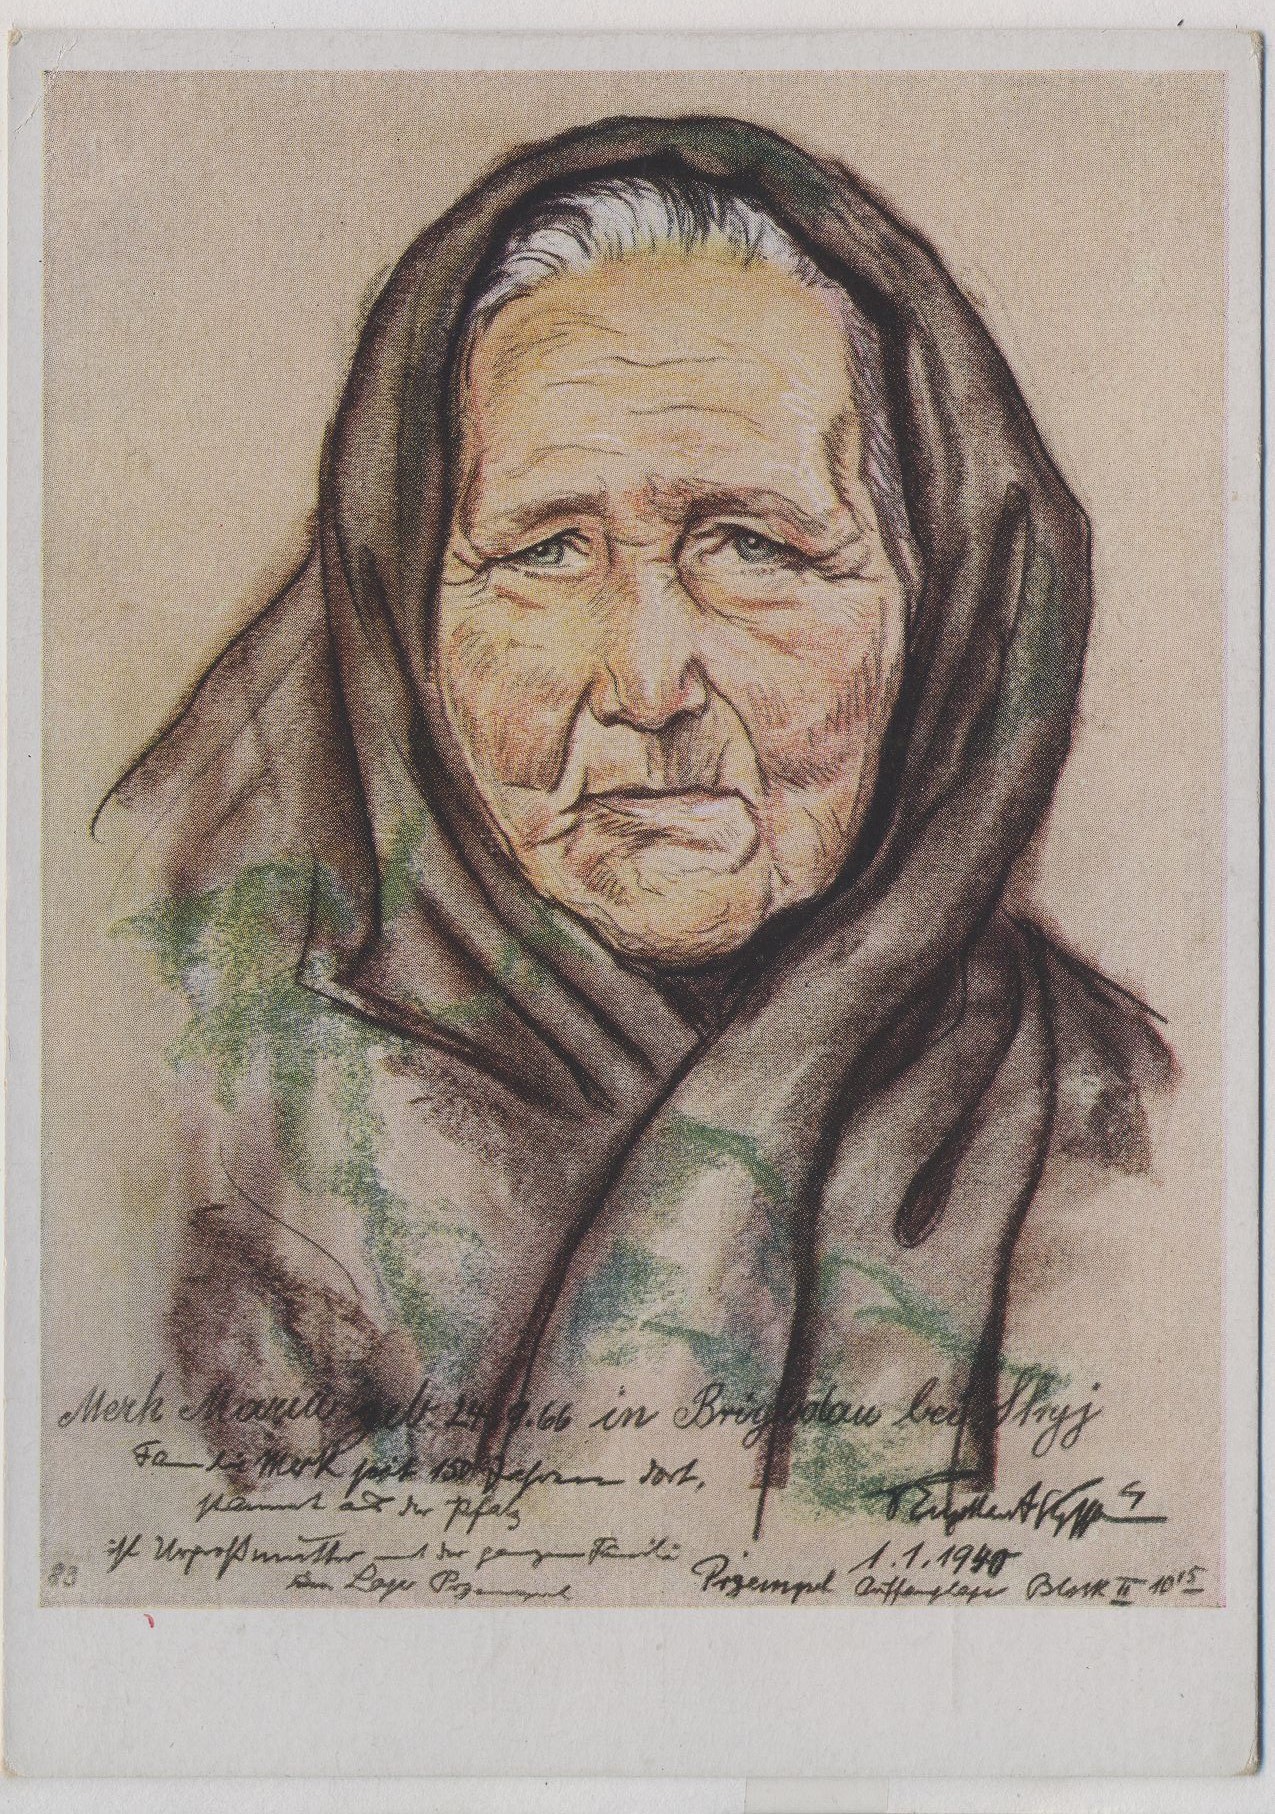 Merk Maria geb. 24.9.66 in Brigidau bei Stryj
Familie Merk seit 150 Jahren dort,
stammt aus der Pfalz
ist Urgroßmutter mit der ganzen Familie
im Lager Przemysl
1.1.1940
Przemysl Auffanglager Block II 10 15
23